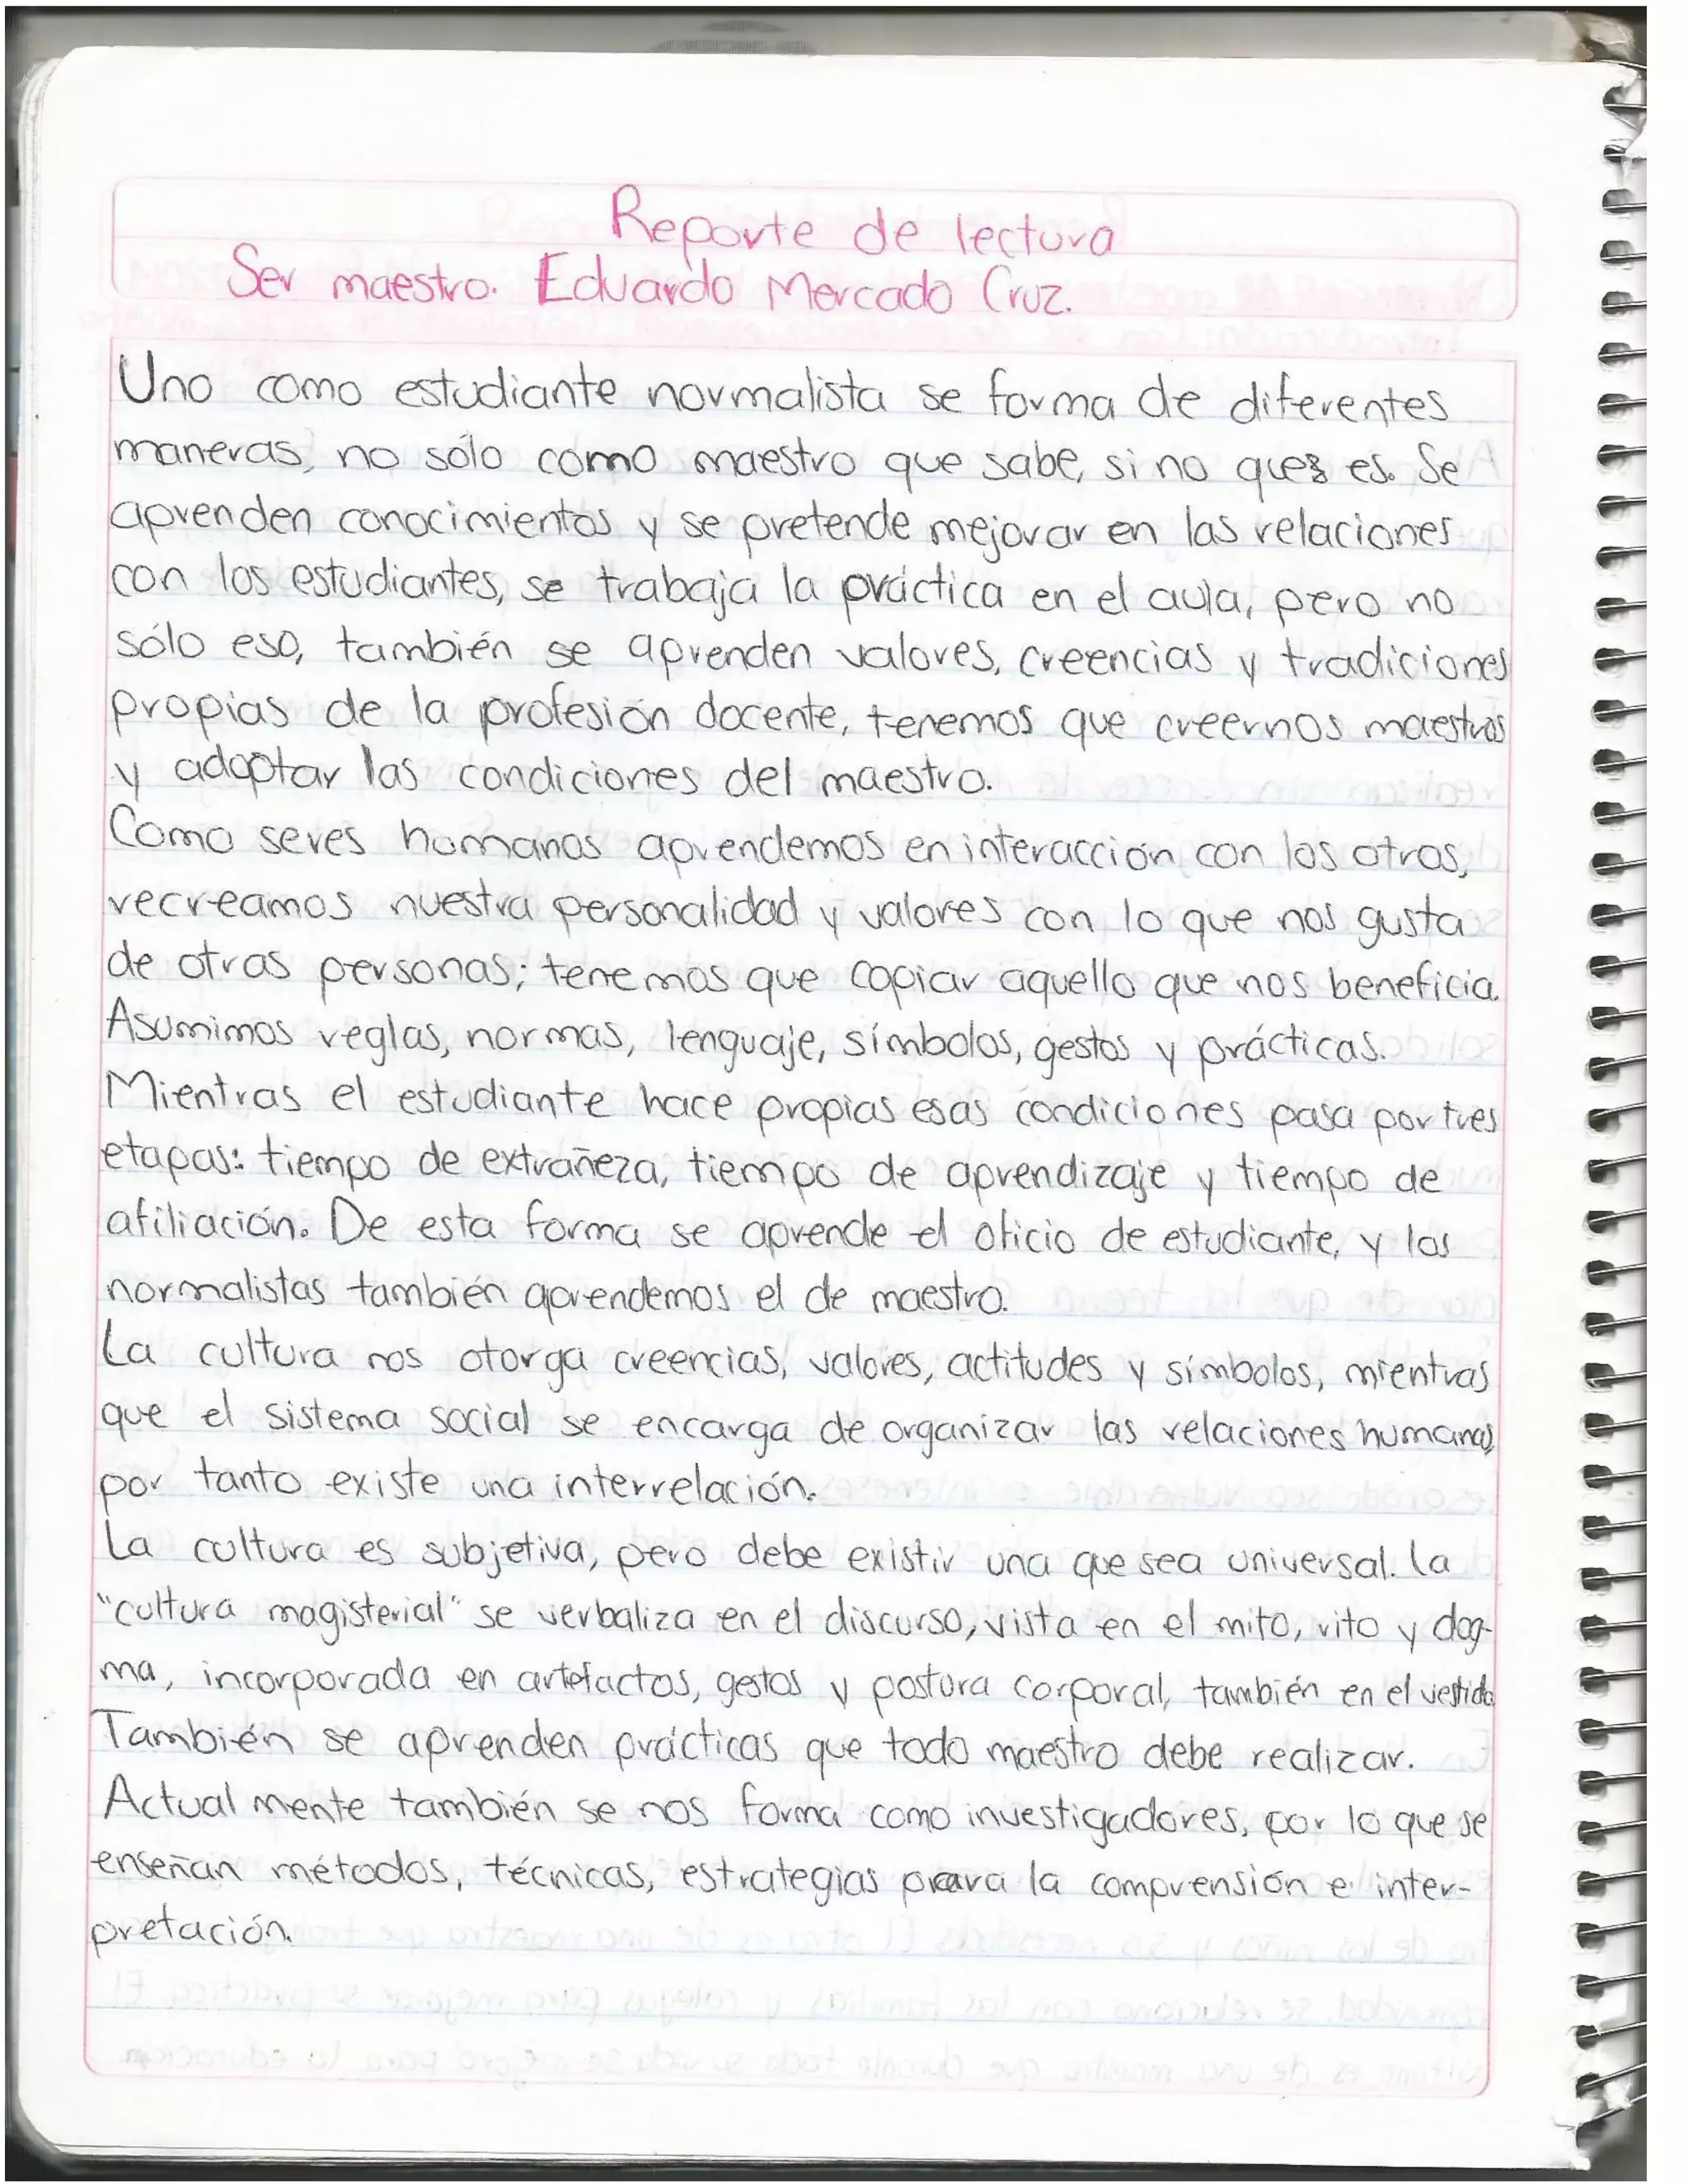 Reporte de lectura
Ser maestro. Eduardo Mercado Cruz.
Uno como estudiante normalista se forma de diferentes
maneras, no sólo como maestro que sabe, si no que es. Se
aprenden conocimientos y se pretende mejorar en las relaciones
con los estudiantes, se trabaja la práctica en el aula, pero no
sólo eso, también se aprenden valores, creencias y tradiciones
propias de la profesión docente, tenemos que creernos maestros
y adoptar las condiciones del maestro.
Como seres humanos aprendemos en interacción con los otros,
recreamos nuestra personalidad y valores con lo que nos gusta
de otras personas; tenemos que copiar aquello que nos beneficia.
Asumimos reglas, normas, lenguaje, símbolos, gestos y prácticas.
Mientras el estudiante hace propias esas condiciones pasa por tres
etapas: tiempo de extrañeza, tiempo de aprendizaje y tiempo de
afiliación. De esta forma se aprende el oficio de estudiante, y los
normalistas también aprendemos el de maestro.
La cultura nos otorga creencias, valores, actitudes y símbolos, mientras
que el sistema social se encarga de organizar las relaciones humanas,
por tanto existe una interrelación.
La cultura es subjetiva, pero debe existir una que sea universal. La
"cultura magisterial" se verbaliza en el discurso, vista en el mito, rito y dog-
ma, incorporada en artefactos, gestos y postura corporal, también en el vestido
También se aprenden prácticas que todo maestro debe realizar.
Actualmente también se nos forma como investigadores, por lo que se
enseñan métodos, técnicas, estrategias para la comprensión e inter-
pretación.